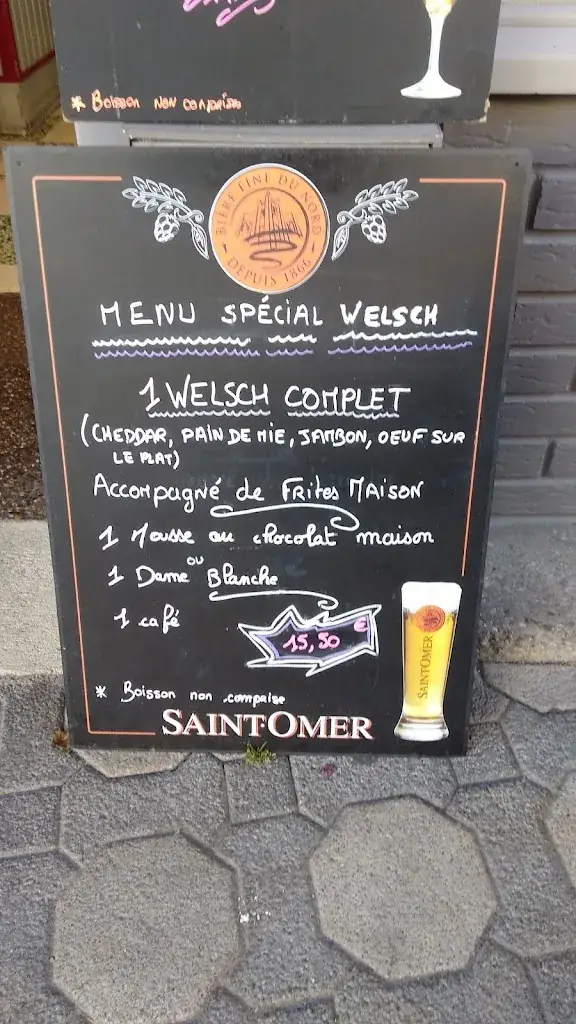 * Boisson non comprise
BIÈRE FINE DU NORD
- DEPUIS 1866 -
MENU SPÉCIAL WELSCH
1 WELSCH COMPLET
(CHEDDAR, PAIN DE MIE, JAMBON, OEUF SUR
LE PLAT)
Accompagné de Frites MAISON
1 Mousse au chocolat maison
ou
1 Dame Blanche
1 café
15,50 €
* Boisson non comprise
SAINT OMER
SAINT OMER